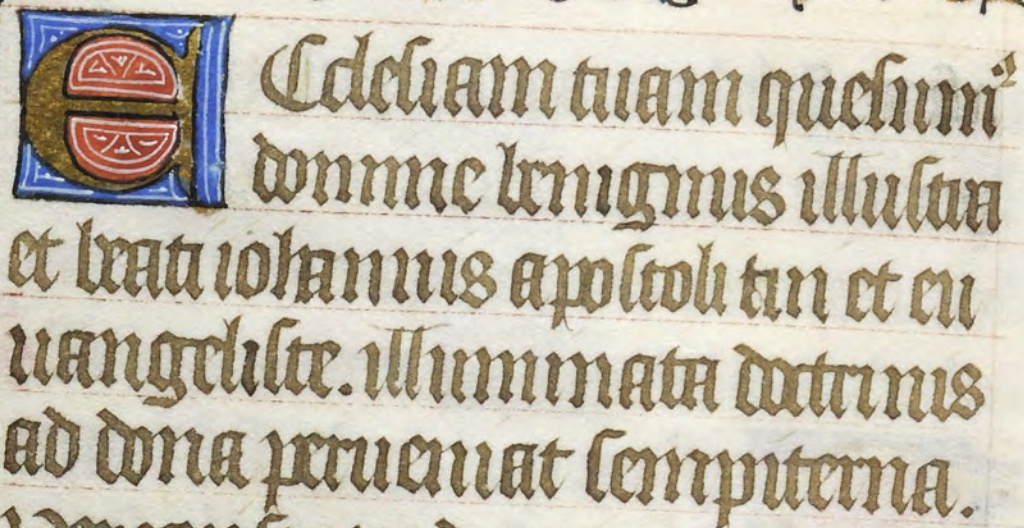 ECclesiam tuam quesumꝰ
domine benignus illustra
et beati iohannis apostoli tui et eu
uangeliste. illuminata doctrinis
ad dona perueniat sempiterna.